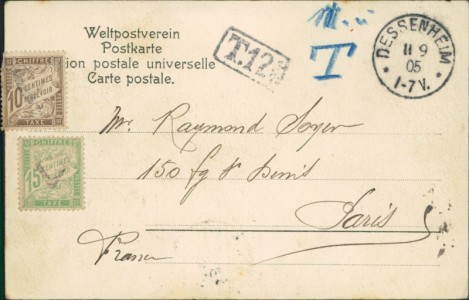 Weltpostverein
Postkarte
ion postale universelle
Carte postale.
T.12½
T
DESSENHEIM
11 9
05
1-7V.
CHIFFRE
10 CENTIMES
À PERCEVOIR
TAXE
CHIFFRE
15 CENTIMES
TAXE
Mr. Raymond Soyer
150 fg St Denis
Paris
France